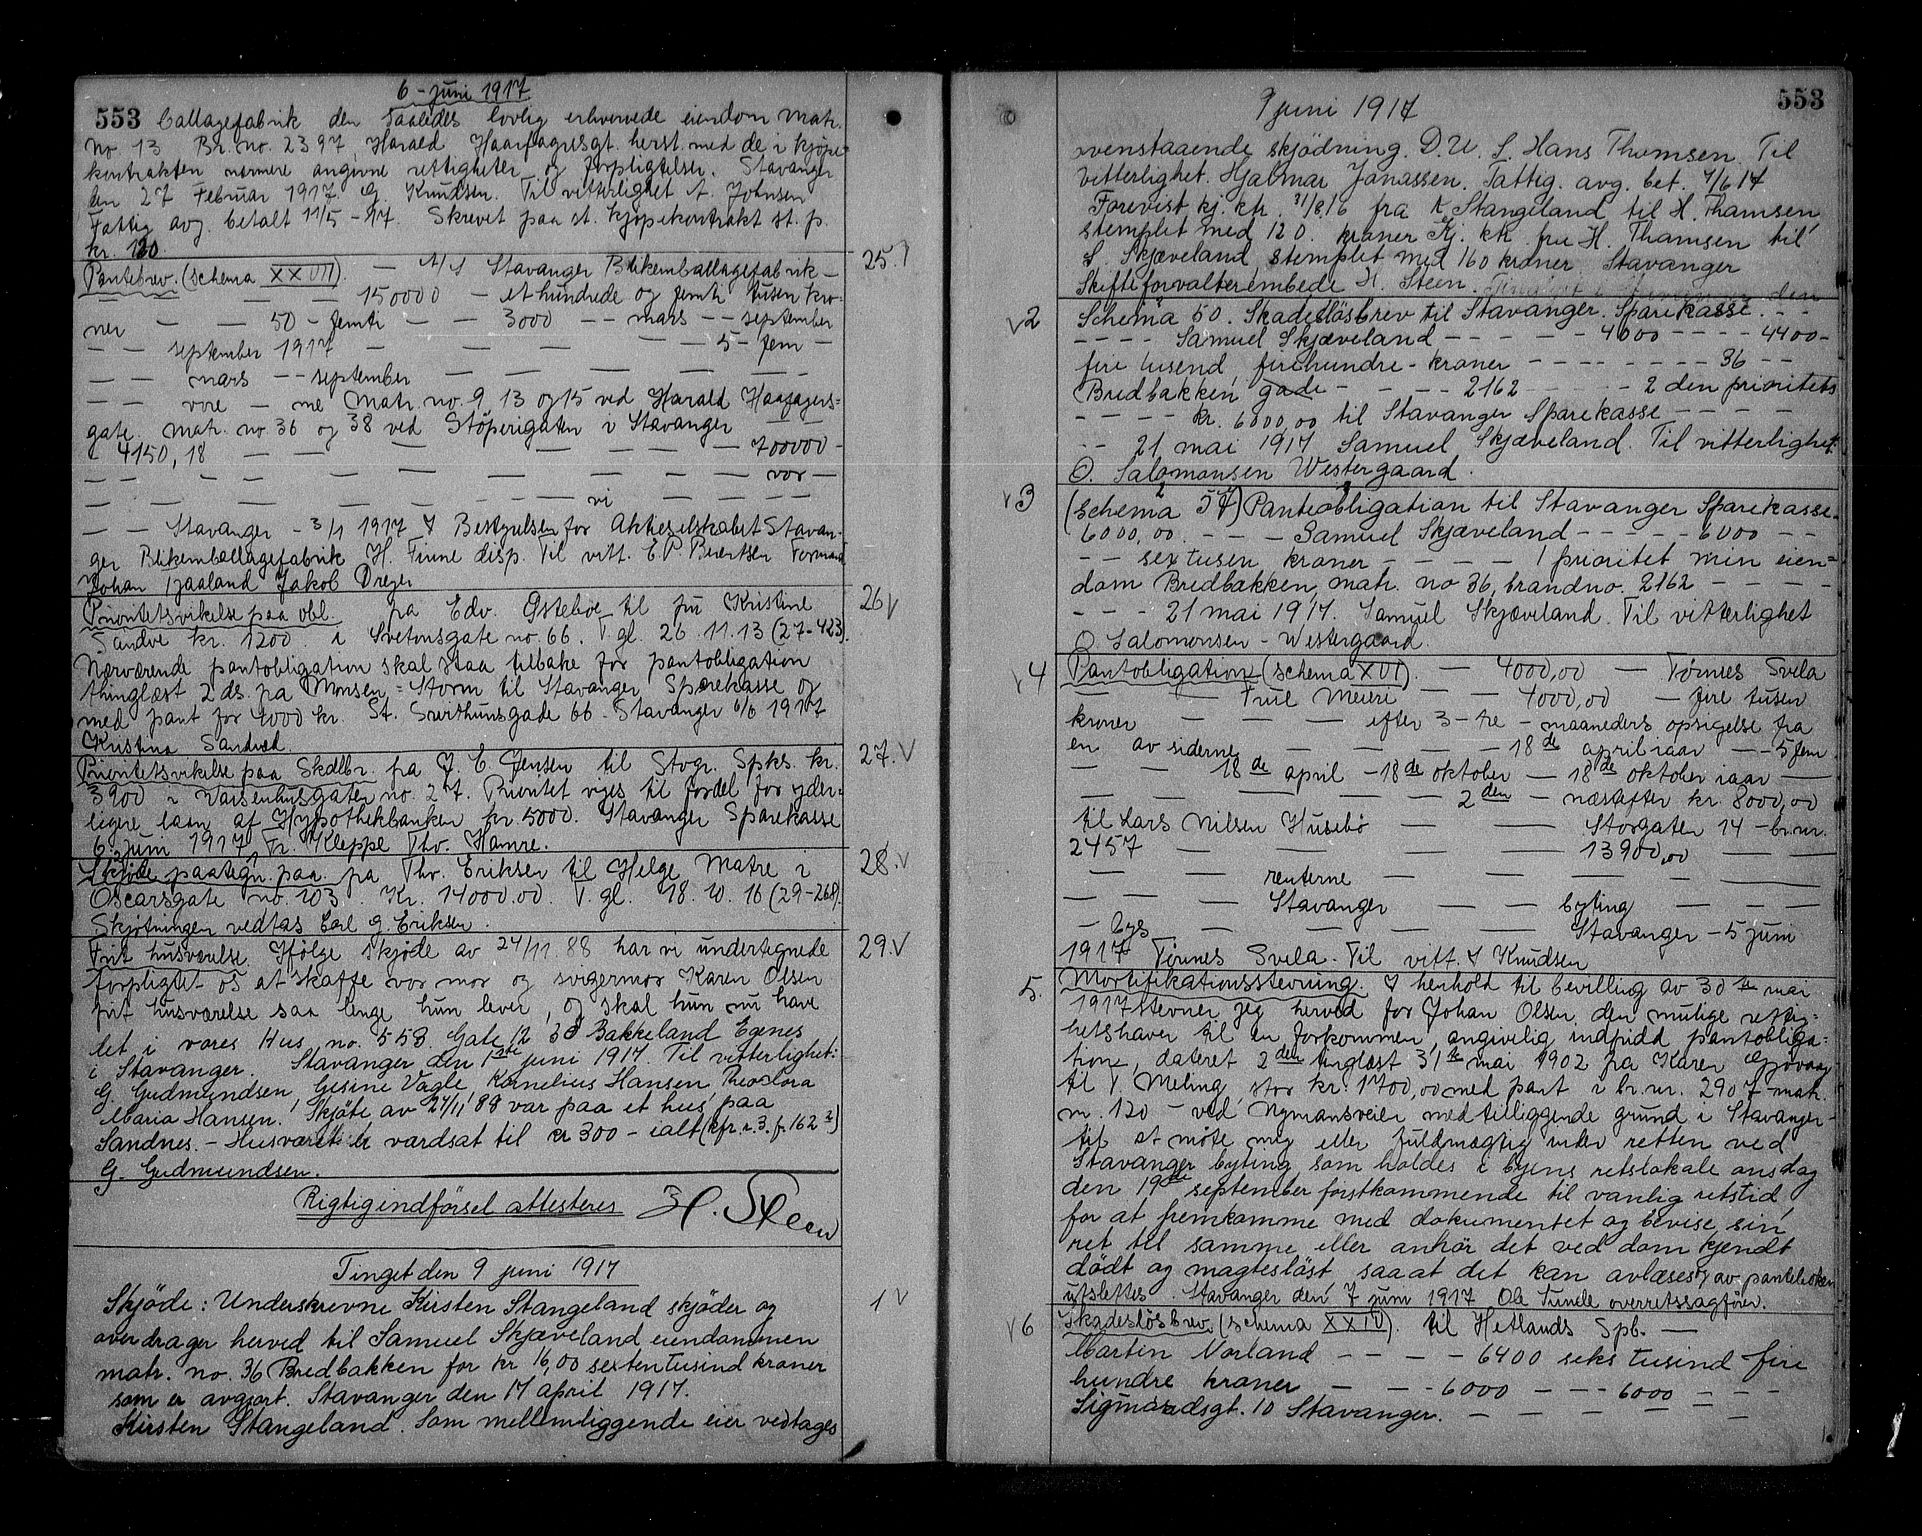 6 - juni 1917
553 ballagefabrik den saaledes lovlig erhvervede eiendom matr.
No. 13 Br. no. 2397, Harald Haarfagresgt. herst. med de i kjøpe-
kontrakten nærmere angivne rettigheter og forpligtelser. Stavanger
den 27 Februar 1917. G. Knudsen. Til vitterlighet A. Johnsen
Fattig avg. betalt 11/5 - 17. Skrevet paa st. kjøpekontrakt st. p.
kr. 120
Pantebrev. (schema XXVII). — A/S Stavanger Blikemballagefabrik — 25.
— — — 150000 — et hundrede og femti tusen kro-
ner — — 50 - femti — — 3000 — — mars — — september
— — september 1917 — — — — — 5 - fem —
— — mars — — september — — — — — —
— — vore — me Matr. no. 9 13 og 15 ved Harald Haafagers=
gate. matr. no. 36 og 38 ved Stöperigaten i Stavanger — —
g 4150,18 — — — — — — 700000 -
— — — — — — — vor —
— — — — — — vi — — — —
— — Stavanger - 3/1 1917 I Bestyrelsen for Aktieselskabet Stavan-
ger Blikemballagefabrik H. Finne disp. Til vitt. E P Bwertsen Formand
Johan Kjaaland Jakob Dreyer
Prioritetsvikelse paa obl. fra Edv. Østebøe til fru Kristine 26 V
Sandve kr. 1200 i Svetunsgate no. 66. T. gl. 26.11.13 (27-423).
Nærværende pantobligation skal staa tilbake for pantobligation
thinglæst 2 ds. fra Monsen = Storm til Stavanger Sparekasse og
med pant for 4000 kr. St. Svithunsgade 66 - Stavanger 6/6 1917
Kristina Sandved.
Prioritetsvikelse paa Skdlbr. fra J. E. Jensen til Stvgr. Spks. kr. 27. V
3900 i Vaisenhusgaten no. 27. Prioritet vijes til fordel for yder-
ligere laan af Hypothekbanken kr. 5000. Stavanger Sparekasse
6 juni 1917 Tr. Kleppe Thv. Hamre.
Skjøde paategn. paa. fra Thv. Eriksen til Helge Matre i 28. V
Oscarsgate no. 103. Kr. 14000.00. T. gl. 18.10.16 (29-268).
Skjøtningen vedtas Carl G. Eriksen.
Frit husværelse. Ifølge skjøde av 24/11 88 har vi undertegnede 29. V
forpligtet os at skaffe vor mor og svigermor Karen Olsen
frit husværelse saa lenge hun lever, og skal hun nu have
det i vores Hus no. 558. Gate 12 38 Bakkeland Egenes
i Stavanger. Stavanger den 1ste juni 1917. Til vitterlighet:
G. Gudmundsen, Gesine Vagle, Kornelius Hansen Theodora
Maria Hansen. Skjöte av 24/11 88 var paa et hus paa
Sandnes. - Husværet er vardsat til kr 300 - ialt (kfr. r. 3. f. 162 )
G. Gudmundsen.
Rigtig indförsel attesteres H. Steen
Tinget den 9 juni 1917
Skjöde: Underskrevne Kirsten Stangeland skjöder og 1 V
overdrager herved til Samuel Skjæveland eiendommen
matr. no. 36 Bredbakken for kr 16,00 sexten tusind kroner
som er avgjort. Stavanger den 17 april 1917.
Kirsten Stangeland. Som mellemliggende eier vedtages
9 juni 1917 553
ovenstaaende skjödning. D. U. S. Hans Thomsen. Til
vitterlighet. Hjalmar Jonassen. Fattig. avg. bet. 7/6 17
Forevist kj. ktr. 31/8 16 fra K. Stangeland til H. Thomsen
stemplet med 120. kroner Kj. ktr. fra H. Thamsen til
S. Skjæveland stemplet med 160 kroner. Stavanger
Skifteforvalterembede H. Steen.
V 2 Schema 50. Skadeslösbrev til Stavanger. Sparekasse. - -
- - - - Samuel Skjæveland - - - - - 4000 - - - - 4400 -
fire tusend, firehundre - kroner - - - - - - - - 36 - -
Bredbakken gade - - - - 2162 - - - - 2 den prioritets
- - - - kr. 6000,00 til Stavanger Sparekasse - - - - -
- - 21 mai 1917. Samuel Skjæveland. Til vitterlighet:
O. Salomonsen Westergaard.
V 3 (Schema 57) Panteobligation til Stavanger Sparekasse.
6000,00. - - - Samuel Skjæveland - - - - - 6000 - -
- - sex tusen kroner - - - - - 1 prioritet min eien=
dom Bredbakken, matr. no 36, brandno. 2162 - - - -
- - - 21 mai 1917. Samuel Skjæveland. Til vitterlighet
O. Salomonsen - Westergaard.
V 4 Pantobligation (schema XVI). — 4000,00 — Tørnes Svela
— — True Meieri — — 4000,00 — fire tusen
kroner — — — efter 3 - tre - maaneders opsigelse fra
en av siderne — — — — 18de april iaar — — 5 fem
— — 18de april - 18de oktober — 18de oktober iaar —
— — — — — — 2den — næstefter kr. 8000,00
til Lars Nilsen Husebö — — Storgaten 14 - br.nr.
2457 — — — — — 13900,00 — —
— — — renterne — — — — —
— — — Stavanger — — byting — — —
— Bys — — — — — Stavanger - 5 juni
1917 Tönnes Svela. Til vitt. I Knudsen
5. Mortifikationsstevning. I henhold til bevilling av 30te mai
1917 stevner jeg herved for Johan Olsen, den mulige rettig-
hetshaver til en forkommen, angivelig indfridd pantobliga=
tion, dateret 2den tinglæst 31te mai 1902 fra Karen Gjövaag
til T. Meling, stor kr. 1700,00 med pant i br.nr. 2907 - matr.
nr. 120 - ved Nymansveien med tilliggende grund i Stavanger -
til at möte mig eller fuldmægtig inden retten ved
Stavanger byting, som holdes i byens retslokale onsdag
den 19de september förstkommende til vanlig retstid,
for at fremkomme med dokumentet og bevise sin
ret til samme, eller anhör det ved dom kjendt
dödt og magteslöst, saa at det kan avlæses og av panteboken
utslettes. Stavanger den 7 juni 1917 Ole Tunele overretssagförer.
V 6 Skadeslösbrev. (schema XXIV). til Hetlands Spb. —
Martin Norland — — — — 6400 seks tusind fire
hundre kroner — — - 6000 — — - 6000 — — —
Sigmundsgt. 10 Stavanger. — — — — — — —